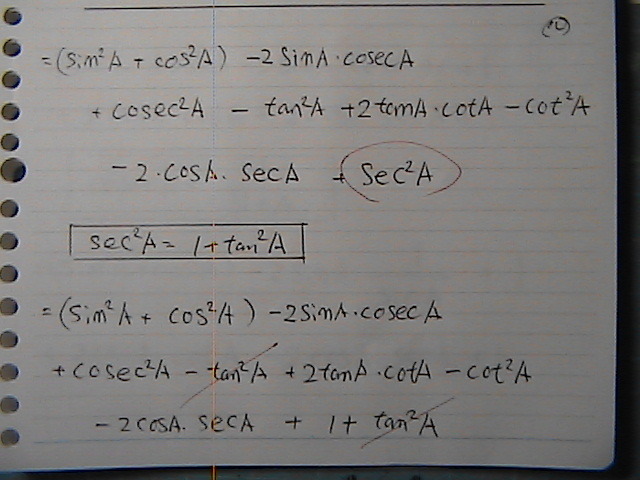 (2)
= (sin²A + cos²A) - 2 sinA · cosecA
+ cosec²A - tan²A + 2 tanA · cotA - cot²A
- 2 · cosA · secA + sec²A
sec²A = 1 + tan²A
= (sin²A + cos²A) - 2 sinA · cosecA
+ cosec²A - tan²A + 2 tanA · cotA - cot²A
- 2 cosA · secA + 1 + tan²A